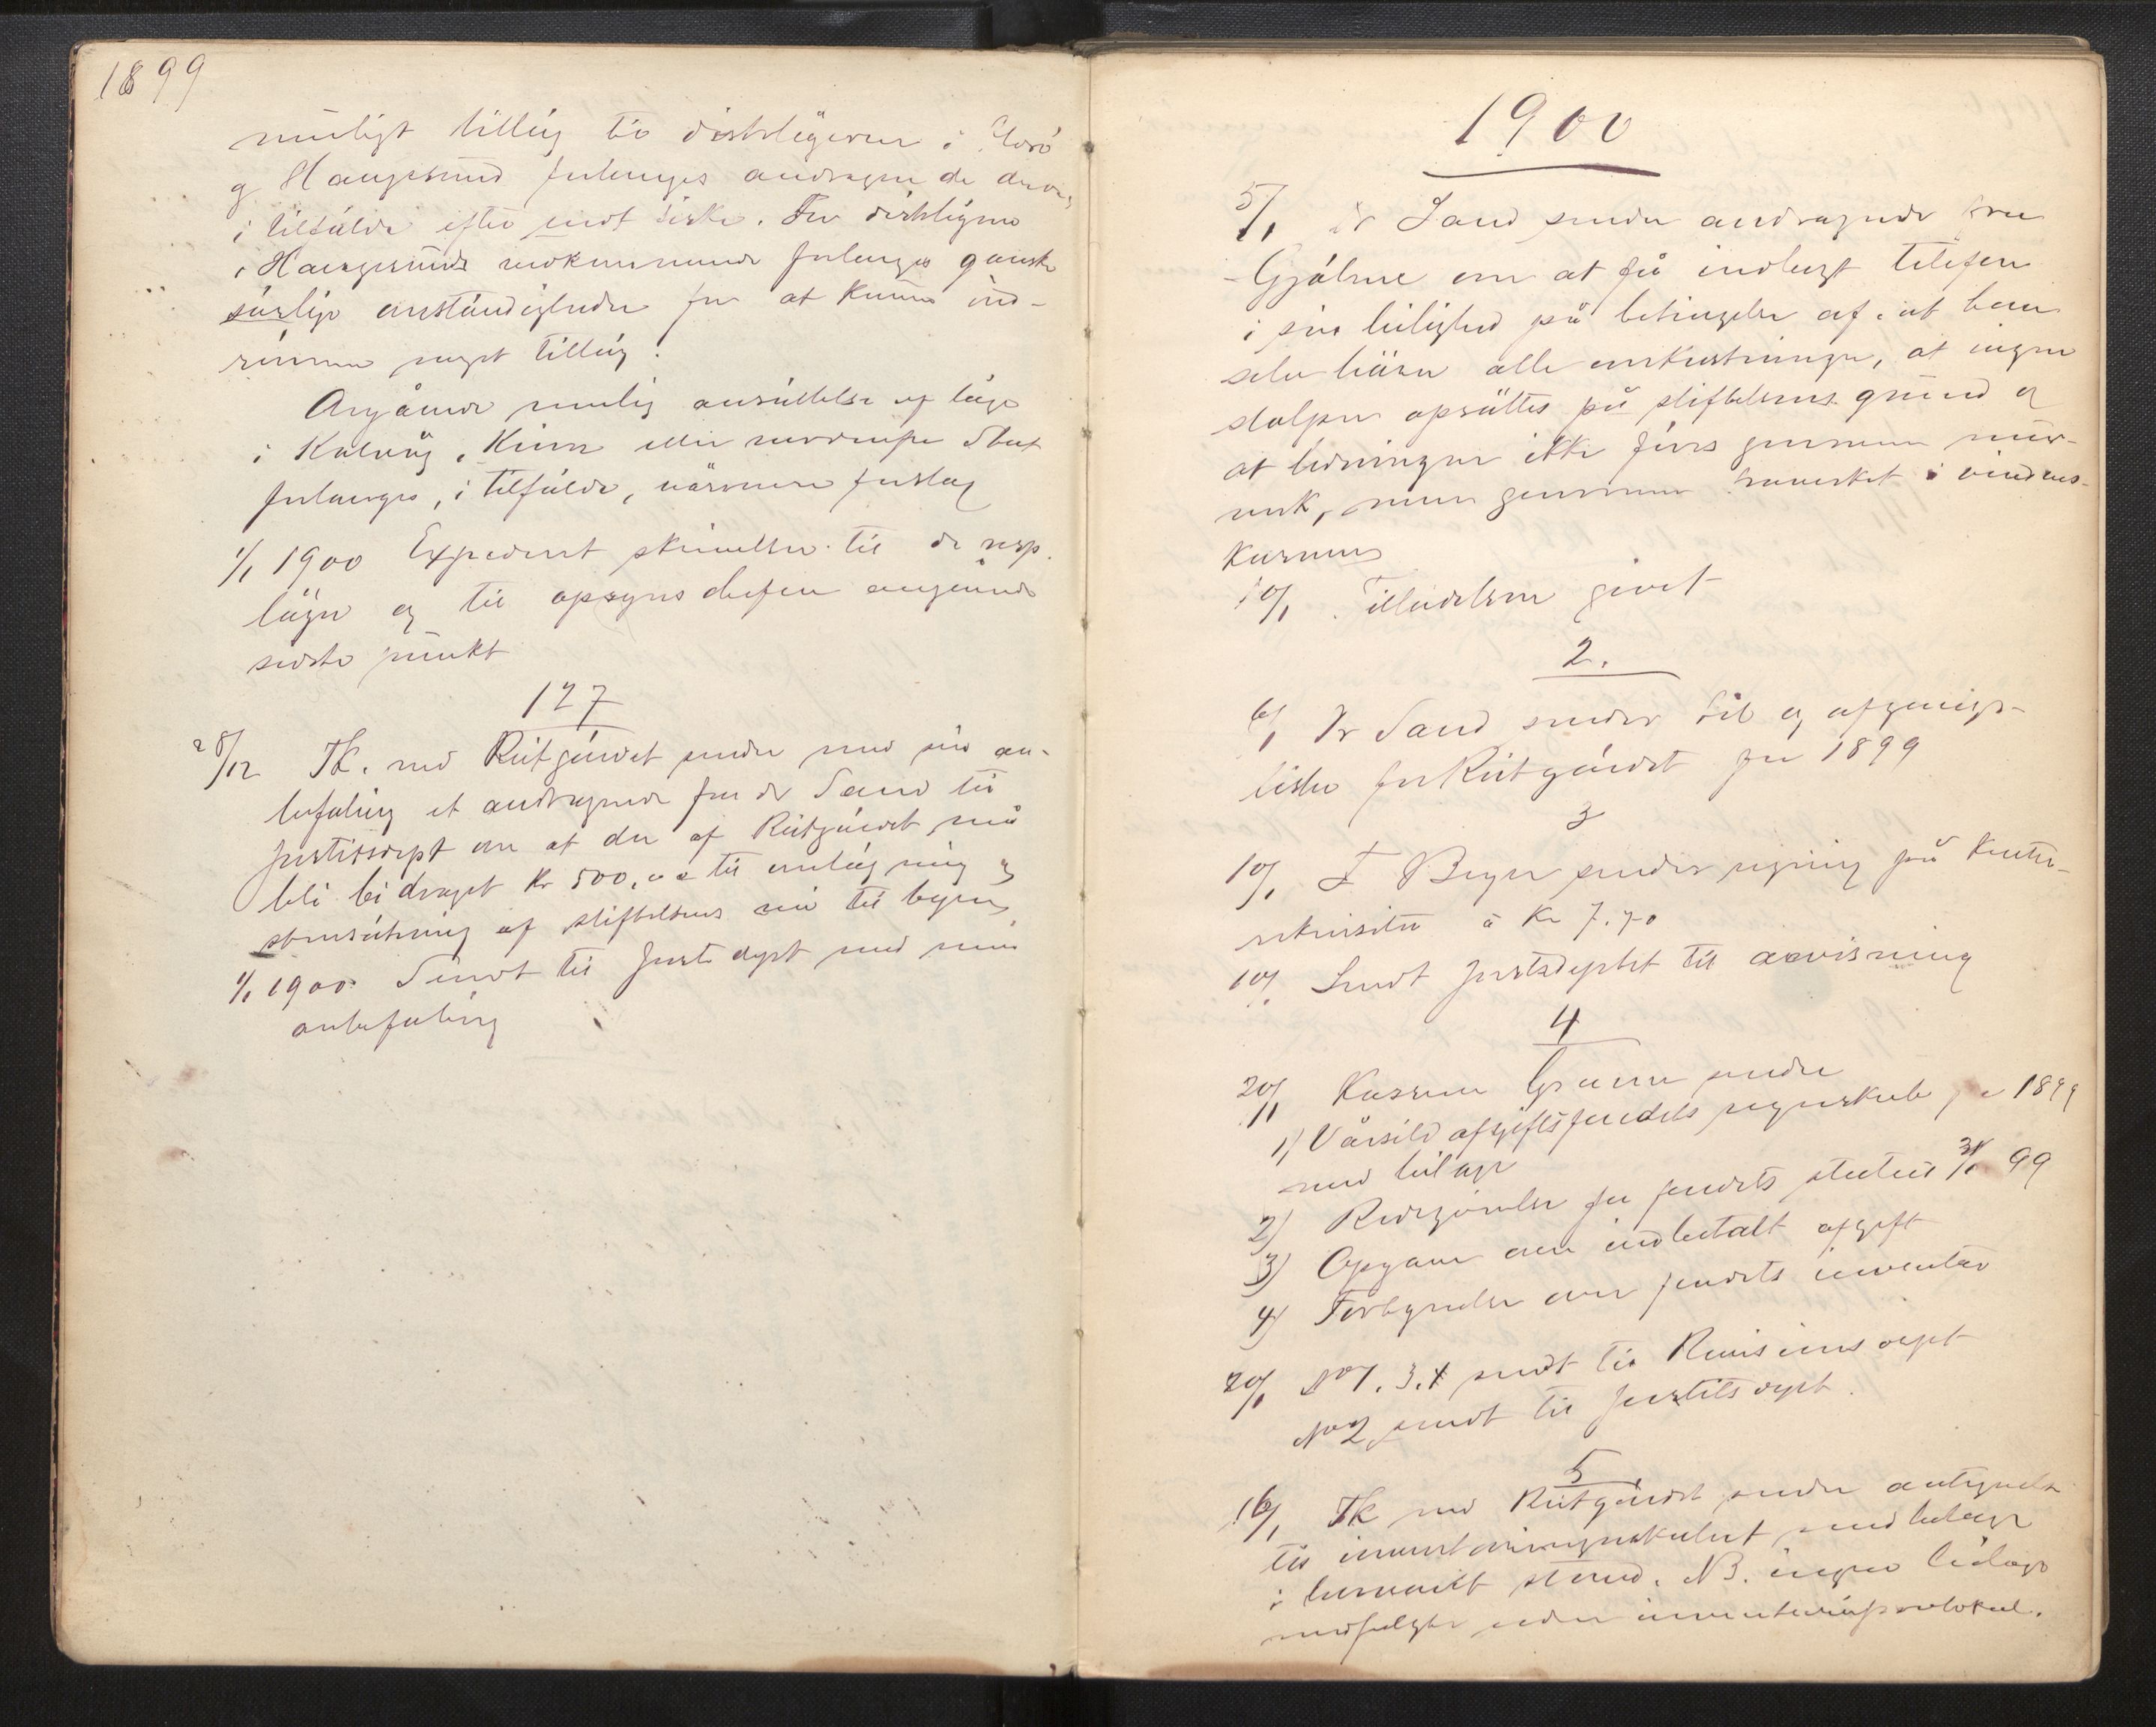 1899
muligt tillæg til distrlægerne i Florø
og Haugesund forlanges andragende derom
i tilfælde efter endt fiske. For distrlægerne
i Haugesunds vedkommende forlanges ganske
særlige omstændigheder for at kunne ind-
rømme noget tillæg.
Angående mulig ansættelse af læge
i Kalvåg, Kinn eller nordenfor Stat
forlanges, i tilfælde, nærmere forslag
1/1 1900 Expederet skrivelser til de resp.
læger og til opsynschefen angående
sidste punkt
127
28/12 Tk. ved Reitgjærdet sender med sin an-
befaling et andragende fra dr Sand til
Justitsdept om at der af Reitgjærdet må
bli bidraget Kr 500,00 til omlægning og
stensætning af stiftelsens vei til byen
1/1 1900 Sendt til Just. dept med min
anbefaling
1900
5/1 dr Sand sender andragende fra
Gjølme om at få indlagt telefon
i sin leilighed på betingelse af, at han
selv bærer alle omkostninger, at ingen
stolper opsættes på stiftelsens grund og
at ledningen ikke føres gjennem mur-
verk, men gjennem træverket i vindus-
karmen
10/1 Tilladelsen givet
2.
6/1 Dr Sand sender til og afgangs-
liste for Reitgjærdet for 1899
3
10/1 F Beyer sender regning på kontor-
rekvisita à Kr 7.70
10/1 Sendt Justsdeptet til anvisning
4
20/1 Kasserer Grann sender
1) Vårsild afgiftsfondets regnskab for 1899
med bilage
2) Redegjørelse for fondets status 31/12 99
3) Opgave over indbetalt afgift
4) Fortegnelse over fondets inventar
20/1 No 1. 3. 4 sendt til Revisionsdept
No 2 sendt til Justitsdept.
5
16/1 Tk ved Reitgjærdet sender antegnelse
til inventarieregnskabet med bilage
i besvaret stand. NB. ingen bilage
medfulgte uden inventarieprotokol.